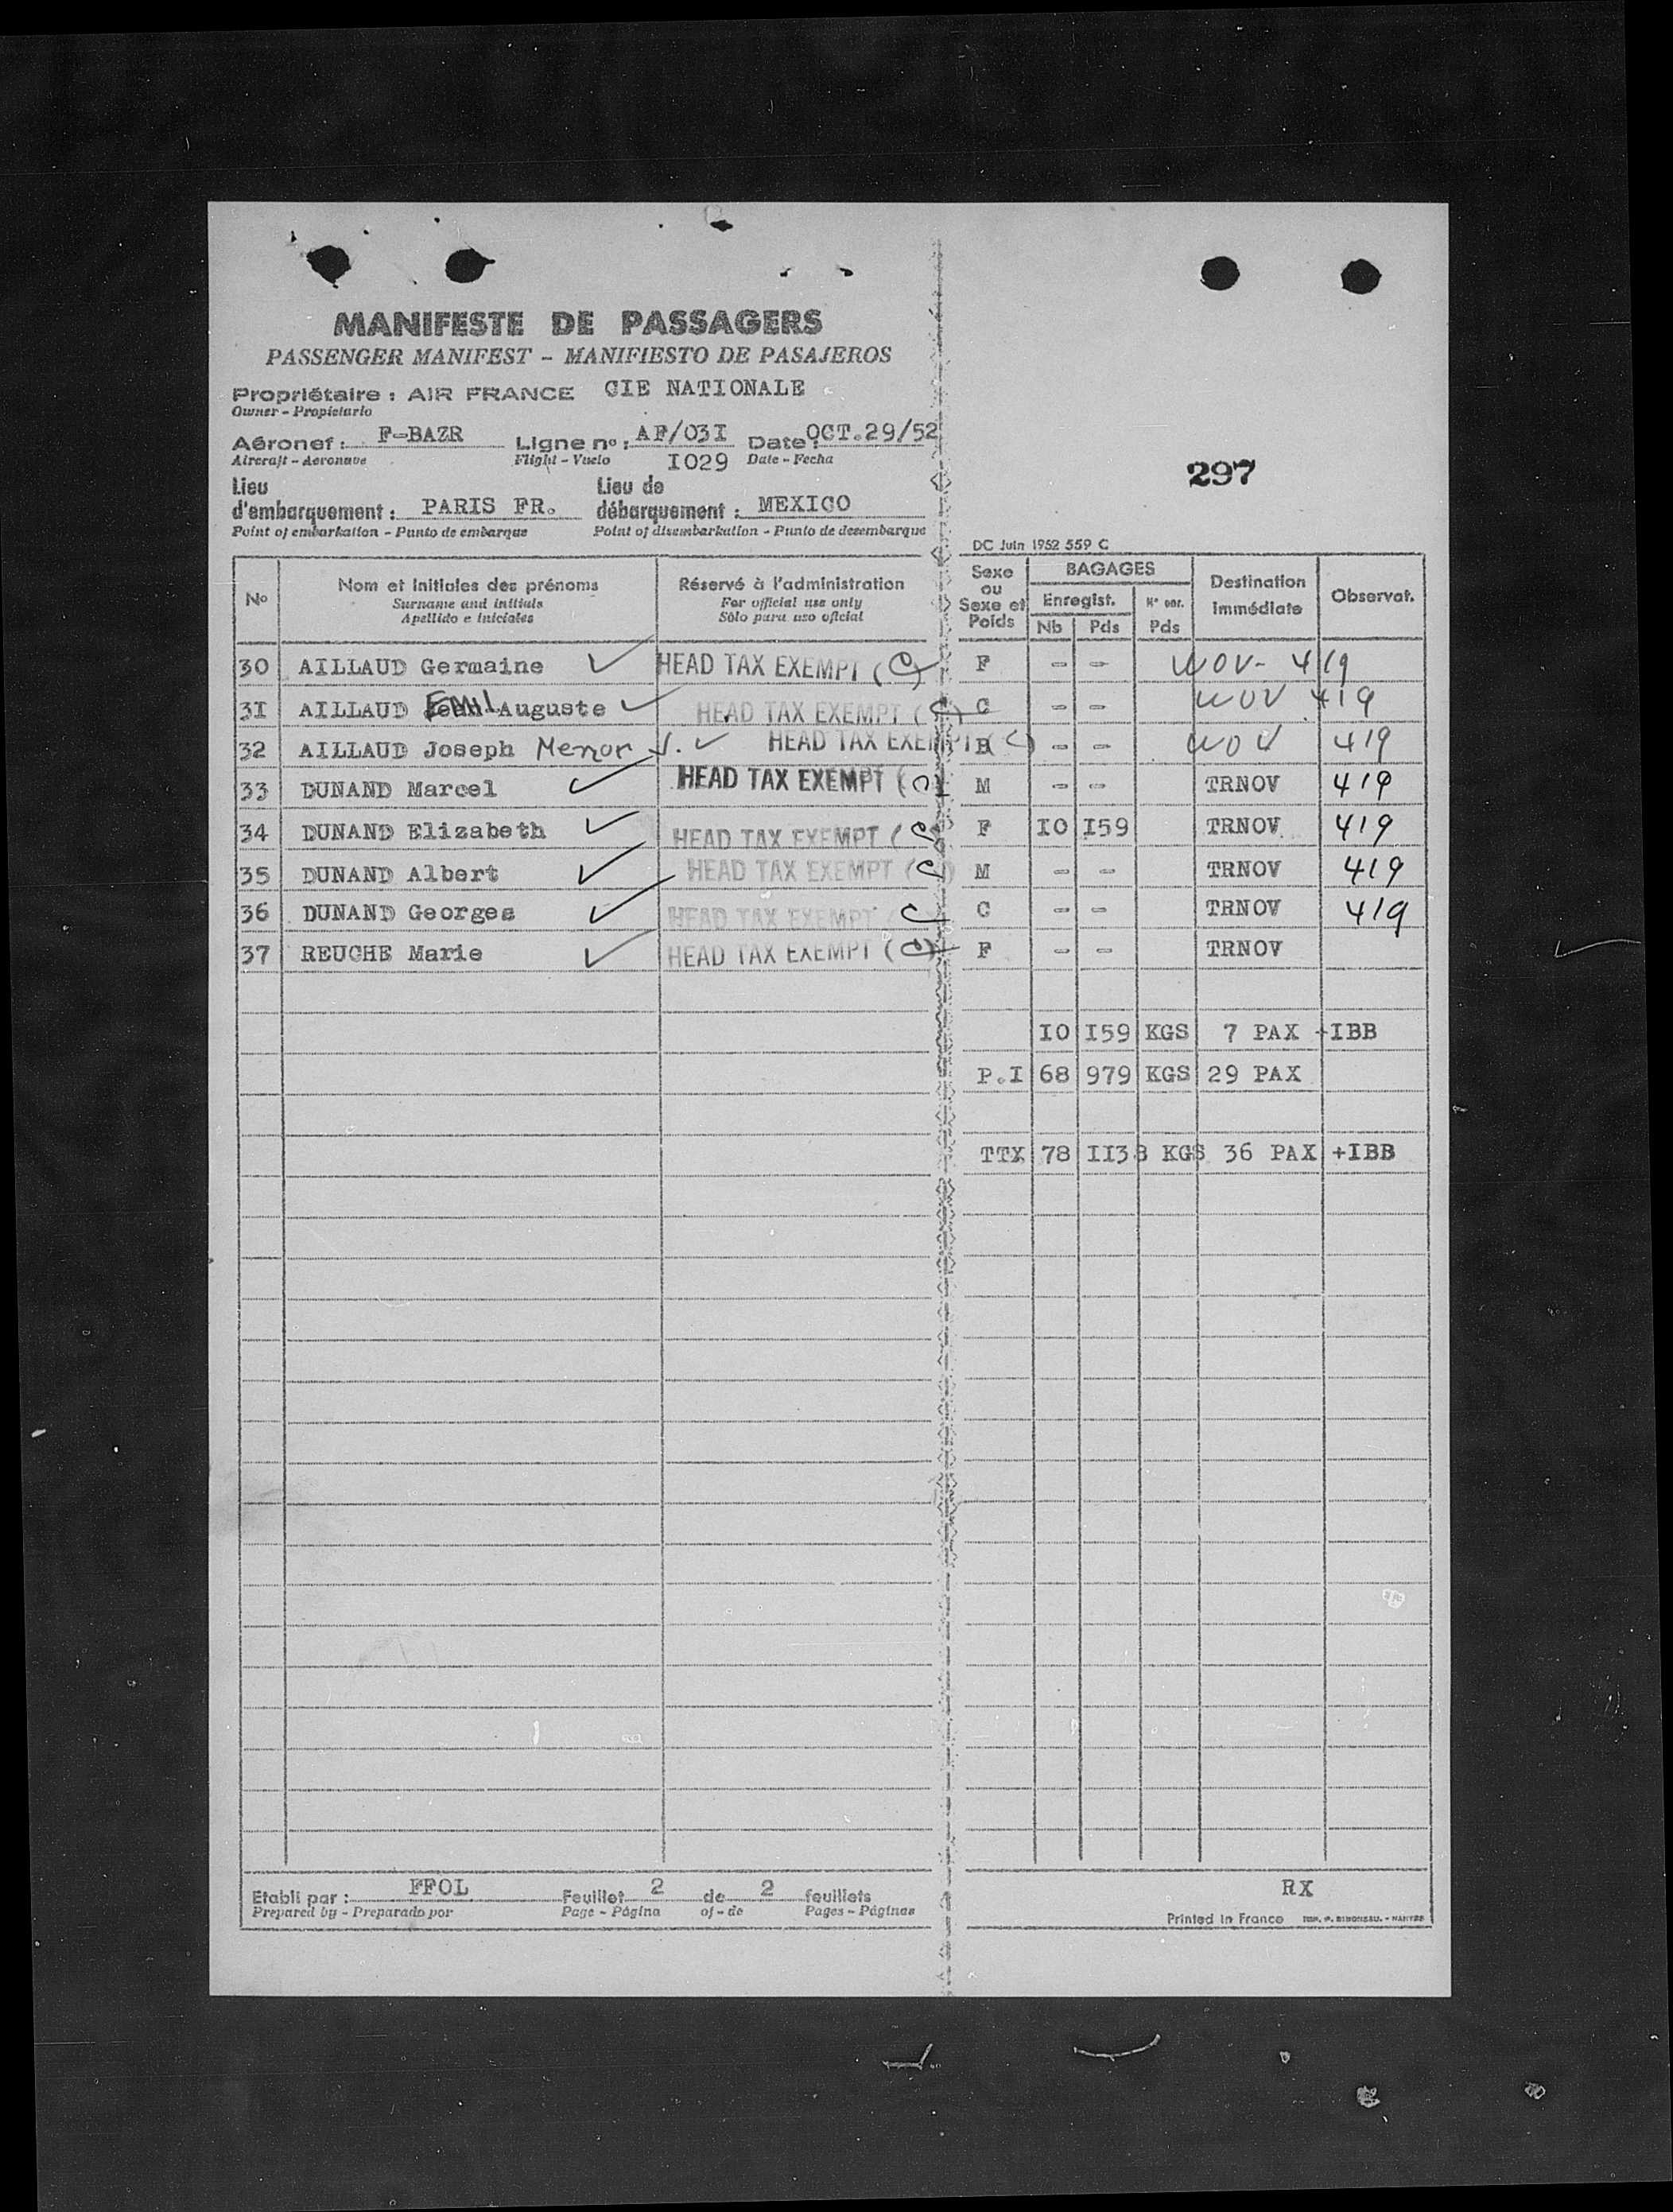 MANIFESTE DE PASSAGERS
PASSENGER MANIFEST - MANIFIESTO DE PASAJEROS
Propriétaire : AIR FRANCE CIE NATIONALE
Owner - Propietario
Aéronef : F-BAZR Ligne no : AF/03I Date : OCT.29/52
Aircraft - Aeronave Flight - Vuelo I029 Date - Fecha
297
Lieu d'embarquement : PARIS FR. Lieu de débarquement : MEXICO
Point of embarkation - Punto de embarque Point of disembarkation - Punto de desembarque
DC Juin 1952 559 C
No Nom et initiales des prénoms Réservé à l'administration Sexe ou Sexe et Poids BAGAGES Destination immédiate Observat.
Surname and initials For official use only Enregist. N° enr.
Apellido e iniciales Sólo para uso oficial Nb Pds Pds
30 AILLAUD Germaine HEAD TAX EXEMPT (C) F - - WOV- 419
3I AILLAUD EMIL Auguste HEAD TAX EXEMPT (C) C - - WOV 419
32 AILLAUD Joseph Menor J. HEAD TAX EXEMPT (C) B - - WOV 419
33 DUNAND Marcel HEAD TAX EXEMPT (C) M - - TRNOV 419
34 DUNAND Elizabeth HEAD TAX EXEMPT (C) F IO I59 TRNOV 419
35 DUNAND Albert HEAD TAX EXEMPT (C) M - - TRNOV 419
36 DUNAND Georges HEAD TAX EXEMPT C C - - TRNOV 419
37 REUCHE Marie HEAD TAX EXEMPT (C) F - - TRNOV
IO I59 KGS 7 PAX +IBB
P.I 68 979 KGS 29 PAX
TTX 78 II38 KGS 36 PAX +IBB
Etabli par : FFOL Feuillet 2 de 2 feuillets RX
Prepared by - Preparado por Page - Página of - de Pages - Páginas
Printed in France